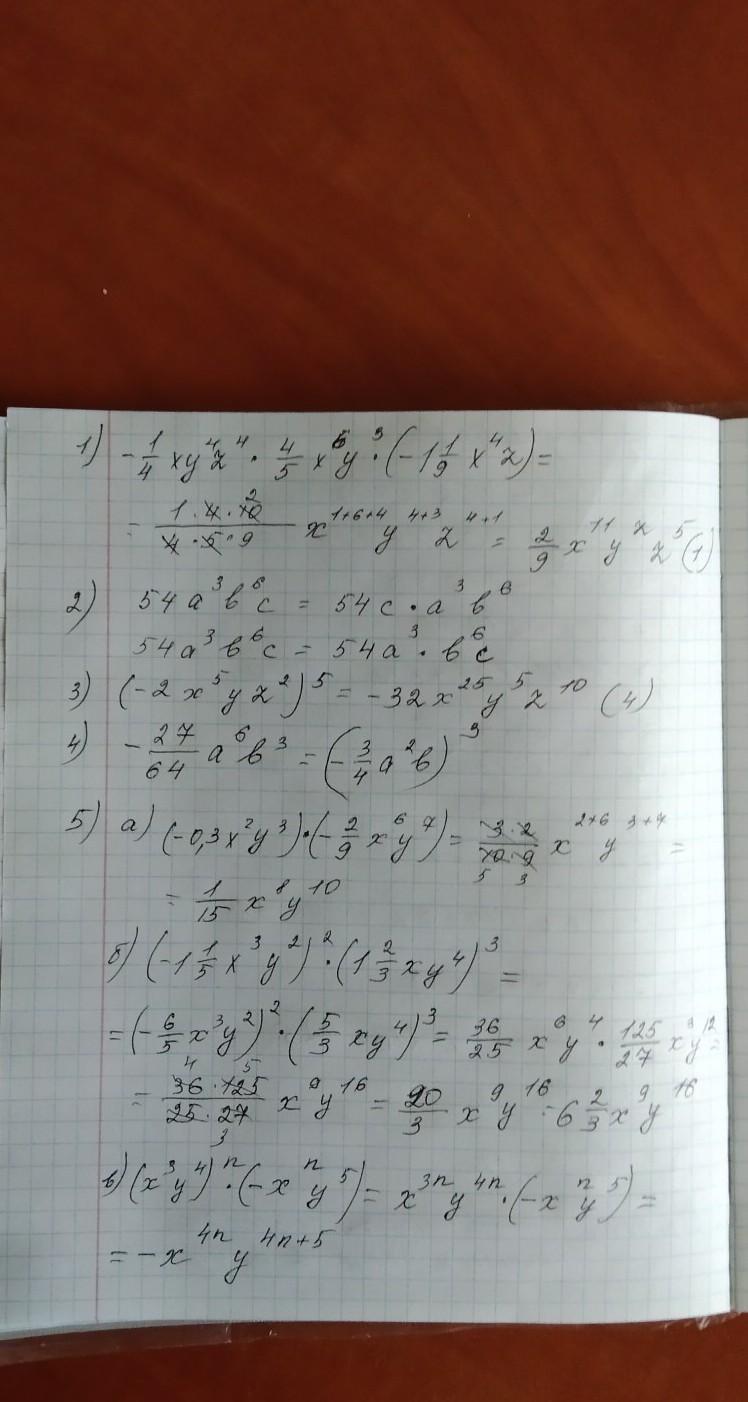 1) -1/4 xy⁴z⁴ · 4/5 x⁶y³ · (-1 1/9 x⁴z) =
= (1·4·10)/(4·5·9) 2 x¹⁺⁶⁺⁴ y⁴⁺³ z⁴⁺¹ = 2/9 x¹¹ y⁷ z⁵ (1)
2) 54a³b⁶c = 54c · a³b⁶
54a³b⁶c = 54a³ · b⁶c
3) (-2x⁵yz²)⁵ = -32x²⁵y⁵z¹⁰ (4)
4) -27/64 a⁶b³ = (-3/4 a²b)³
5) а) (-0,3x²y³)·(-2/9 x⁶y⁷) = (3·2)/(10·9) 5 3 x²⁺⁶ y³⁺⁷ =
= 1/15 x⁸y¹⁰
б) (-1 1/5 x³y²)² · (1 2/3 xy⁴)³ =
= (-6/5 x³y²)² · (5/3 xy⁴)³ = 36/25 x⁶y⁴ · 125/27 x³y¹² =
= (36·125)/(25·27) 4 5 3 x⁹y¹⁶ = 20/3 x⁹y¹⁶ = 6 2/3 x⁹y¹⁶
в) (x³y⁴)ⁿ · (-xⁿy⁵) = x³ⁿy⁴ⁿ · (-xⁿy⁵) =
= -x⁴ⁿy⁴ⁿ⁺⁵